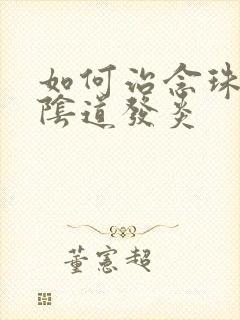 如何治念珠
陰道發炎
董憲超